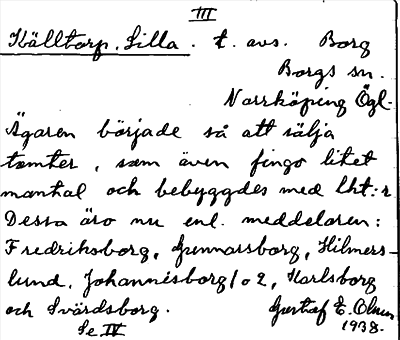 III
Källtorp, Lilla. t. avs. Borg
Borgs sn.
Norrköping Ögl.
Ägaren började så att sälja
tomter, som även fingo litet
mantal och bebyggdes med lht:r
Dessa äro nu enl. meddelaren:
Fredriksborg, Gunnarsborg, Hilmers-
lund, Johannisborg 1 o 2, Karlsborg
och Svärdsborg. Gustaf E. Olsson
Se IV 1938.